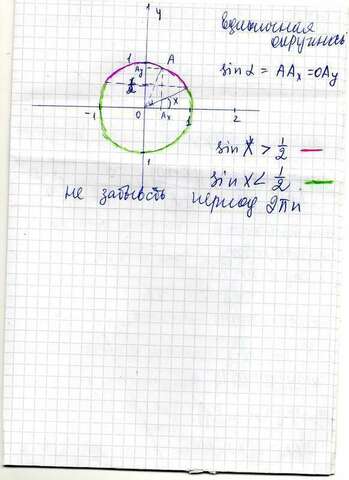 Единичная
окружность
sin α = AAx = OAy
y
1
A
Ay
1/2
α
x
-1
O
Ax
1
2
1
sin x > 1/2
sin x < 1/2
не забывать период 2πn